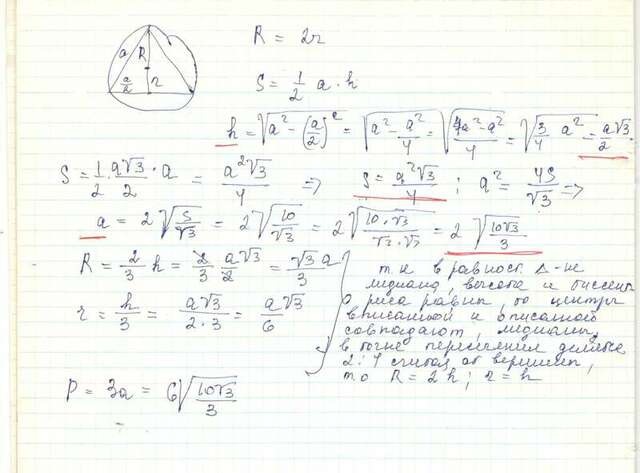 a R a/2 r
R = 2r
S = 1/2 a · h
h = √(a² − (a/2)²) = √(a² − a²/4) = √((4a² − a²)/4) = √(3/4 a²) = a√3/2
S = 1/2 · a√3/2 · a = a²√3/4 ⇒ S = a²√3/4 ; a² = 4S/√3 ⇒
a = 2√(S/√3) = 2√(10/√3) = 2√(10·√3/√3·√3) = 2√(10√3/3)
R = 2/3 h = 2/3 a√3/2 = √3 a/3
r = h/3 = a√3/2·3 = a√3/6
т.к в равност. Δ-ке
медиана, высота и биссект
риса равны, то центры
вписанной и описанной
совпадают, медианы,
в точке пересечения делятся
2:1 считая от вершины,
то R = 2h ; r = h
P = 3a = 6√(10√3/3)